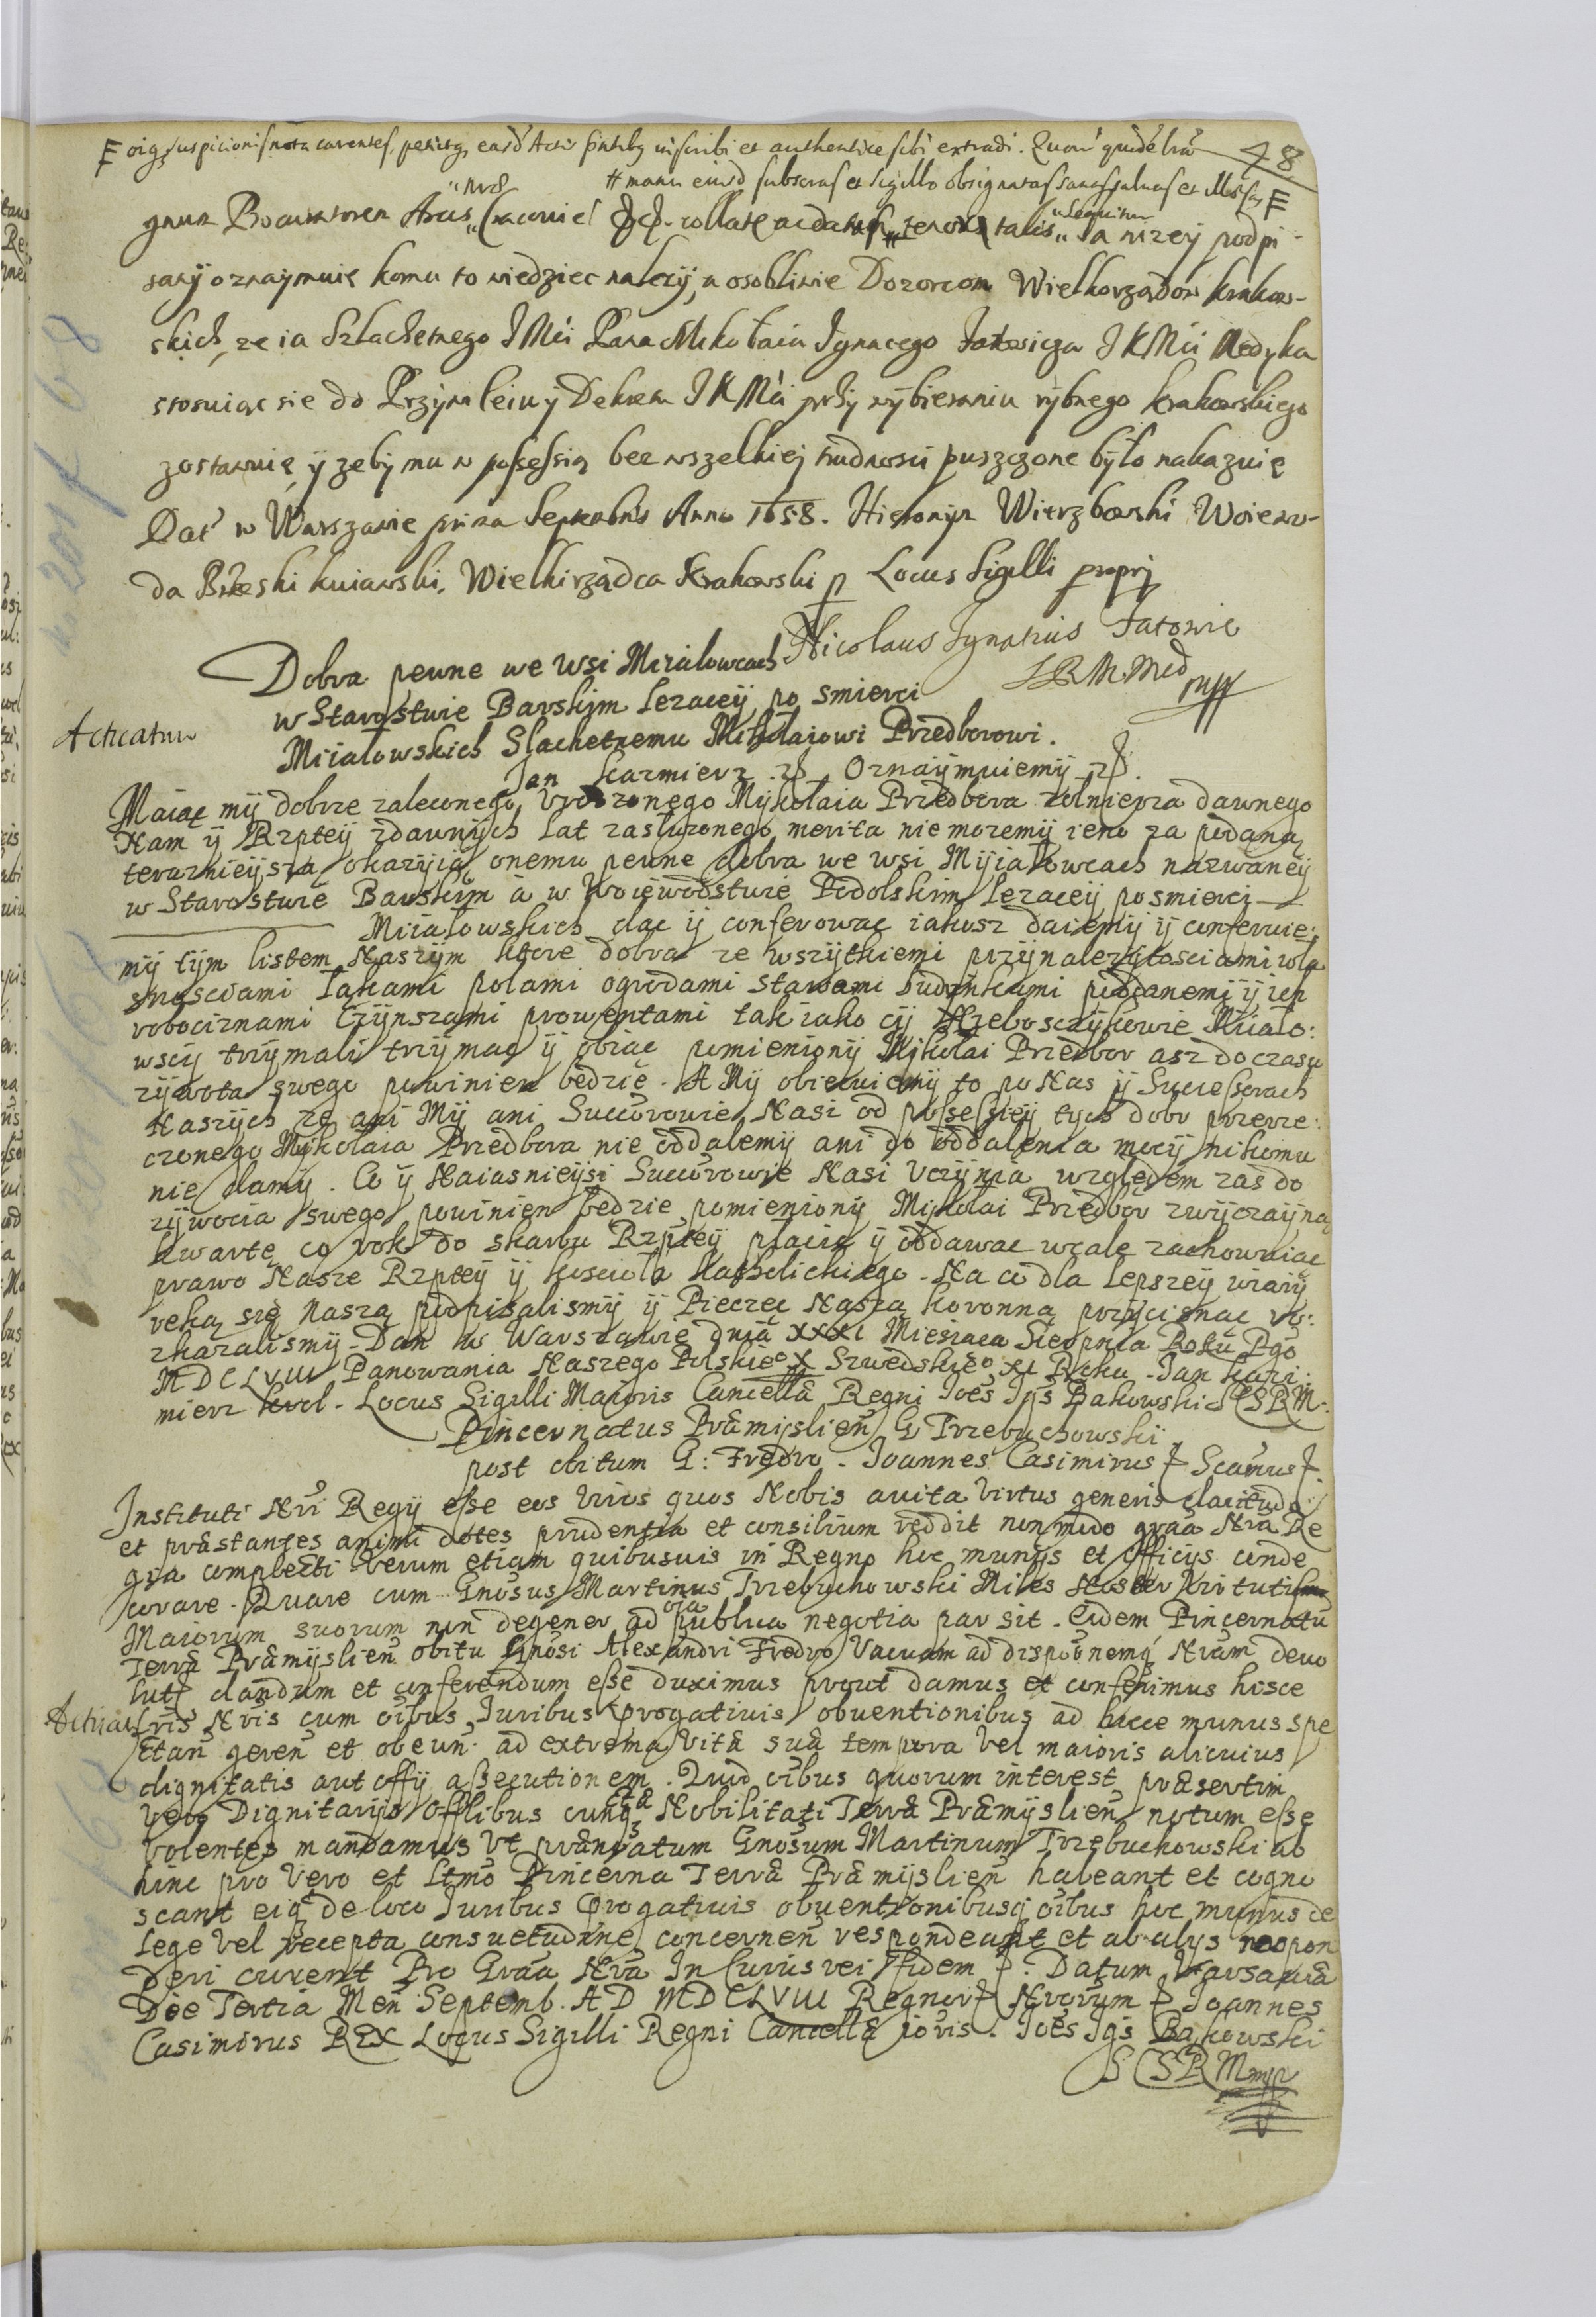 48
F oiq suspicionis nota carentes, petitq eisd Actis pntibq inscribi et authentice sibi extradi. Quarũ quidẽ lrã
# manu eiusd subscras et sigillo obsignatas sanas saluas et illesas F
gnum Procuratorem Arcis Cracouien collat ac datas tenor talis sequitur Ja nizey podpi-
sany oznaymuię komu to wiedziec nalezy, a osobliwie Dozorcom Wielkorządow krakow-
skich, ze ia Szlachetnego JMci Pana Mikołaia Ignacego Jatowicza JKMci Medyka
stosuiąc sie do Przywileiu y Dekretu JKMci przy wybieraniu rybnego krakowskiego
zostawuię, y zeby mu w possessią bez wszelkiej trudnosci puszczone było nakazuię
Dat w Warszawie prima Septembris Anno 1658. Hieronym Wierzbowski Woiewo-
da Brzeski kuiawski, Wielkirządca Krakowski Locus Sigilli proprij
Nicolaus Ignatius Jatowic
S R M. Med
mpp
Dobra pewne we wsi Miialowcach
w Starostwie Barskim lezacey po smierci
Miialowskich Slachetnemu Mikolaiowi Przedborowi.
Acticatur
Jan Kazmierz Oznaymuiemy
Maiąc my dobrze zaleconego Vrodzonego Mykolaia Przedbora zolnierza dawnego
Nam y Rzptey zdawnych lat zasluzonego merita nie mozemy ieno za podaną
terazneiyszą okazyią onemu pewne dobra we wsi Myialowcach nazwaney
w Starostwie Barskim a w Woiewodstwie Podolskim lezacey po smierci
Miialowskich dac y conferowac iakosz daiemy y conferuie:
my tym listem Naszym ktore dobra ze wszytkiemi przynalezytosciami wla
snosciami lakami polami ogrodami stawami budynkami poddanemi y ich
robociznami Czynszami prowentami tak iako cy Nieboszczykowie Miialo:
wscy trzymali trzymac y obiac pomieniony Mikolai Przedbor asz do czasu
zywota swego powinien bedzie. A My obiecuiemy to po Nas y Successorach
Naszych ze ani My ani Succorowie Nasi od possessiey tych dobr przerze:
czonego Mykolaia Przedbora nie oddalemy ani do oddalenia mocy nikomu
nie damy. Co y Naiasnieysi Succorowie Nasi Vczynia względem zas do
zywocia swego powinien bedzie pomieniony Mikolai Przedbor zwyczayną
kwarte co rok do skarbu Rzptey placic y oddawac wcale zachowuiac
prawo Nasze Rzptey y kosciola Katholickiego. Na co dla lepszey wiary
reką się Naszą podpisalismy y Pieczec Naszą koronną przycisnac ro:
zkazalismy. Dan w Warszawie dnia XXXI Miesiaca Sierpnia Roku Pgo
MDCLVIII Panowania Naszego Polskieo X Szwedskieo XI Roku. Jan Kazi:
mierz krol. Locus Sigilli Maioris Cancella Regni Joes Igs Bakowski S C S R M.
Pincernatus Præmyslien G Trzebuchowski
post obitum G: Fredro. Joannes Casimirus Scamus
Instituti Nri Regy esse eos viros quos Nobis auita Virtus generis claritudo
et præstantes animi dotes prudentia et consilium reddit non modo graa Nra Re
gia complecti verum etiam quibusuis in Regno hoc munys et officys conde
corare. Quare cum Gnosus Martinus Trzebuchowski Miles Noster Virtutis
Maiorum suorum non degener ad oia publica negotia par sit. Eidem Pincernatu
Terræ Præmyslien obitu Gnosi Alexandri Fredro Vacuum ad disponemq Nram deuo
lutũ dandum et conferendum esse duximus prout damus et conferimus hisce
Acticat lris Nris cum oibus Juribus progatiuis obuentionibus ad hocce munus spe
ctan geren et obeun ad extrema vitæ suæ tempora vel maioris alicuius
dignitatis aut offy assecutionem. Quod oibus quorum interest præsertim
vero Dignitarijs Offlibus cunctæq Nobilitati Terræ Præmyslien notum esse
volentes mandamus vt prænoatum Gnosum Martinum Trzebuchowski ab
hinc pro vero et ltmo Pincerna Terræ Præmyslien habeant et cogno
scant eiq de loco Juribus progatiuis obuentionibusq oibus hoc munus de
lege vel recepta consuetudine concernen respondeant et ab alys respon
deri curent Pro Graa Nra In Cuius rei fidem Datum Varsauiæ
Die Tertia Men Septemb. AD MDCLVIII Regnor Nrorum Joannes
Casimirus REX Locus Sigilli Regni Cancellæ ioris. Joes Igs Bakowski
S C S R M mpp